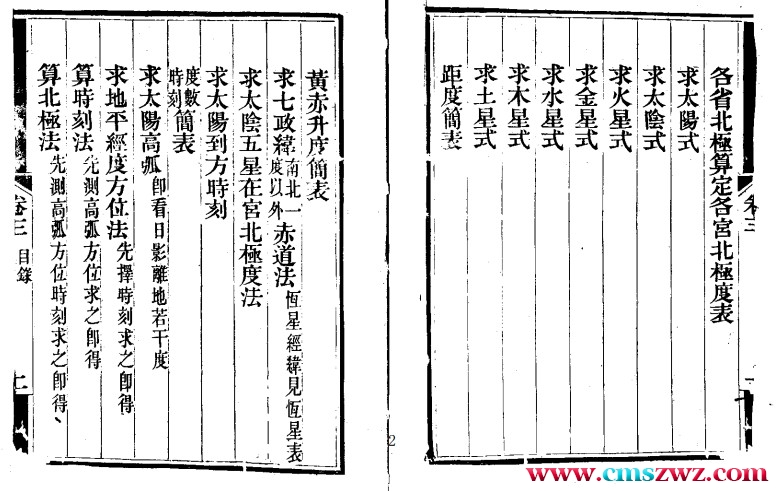 各省北極算定各宮北極度表
求太陽式
求太陰式
求火星式
求金星式
求水星式
求木星式
求土星式
距度簡表
卷三
黃赤升度簡表
求七政緯南北一度以外赤道法恆星經緯見恆星表
求太陰五星在宮北極度法
求太陽到方時刻
度數時刻簡表
求太陽高弧即看日影離地若干度
求地平經度方位法先擇時刻求之即得
算時刻法先測高弧方位求之即得
算北極法先測高弧方位時刻求之即得、
卷三
目錄
2
www.cmszwz.com